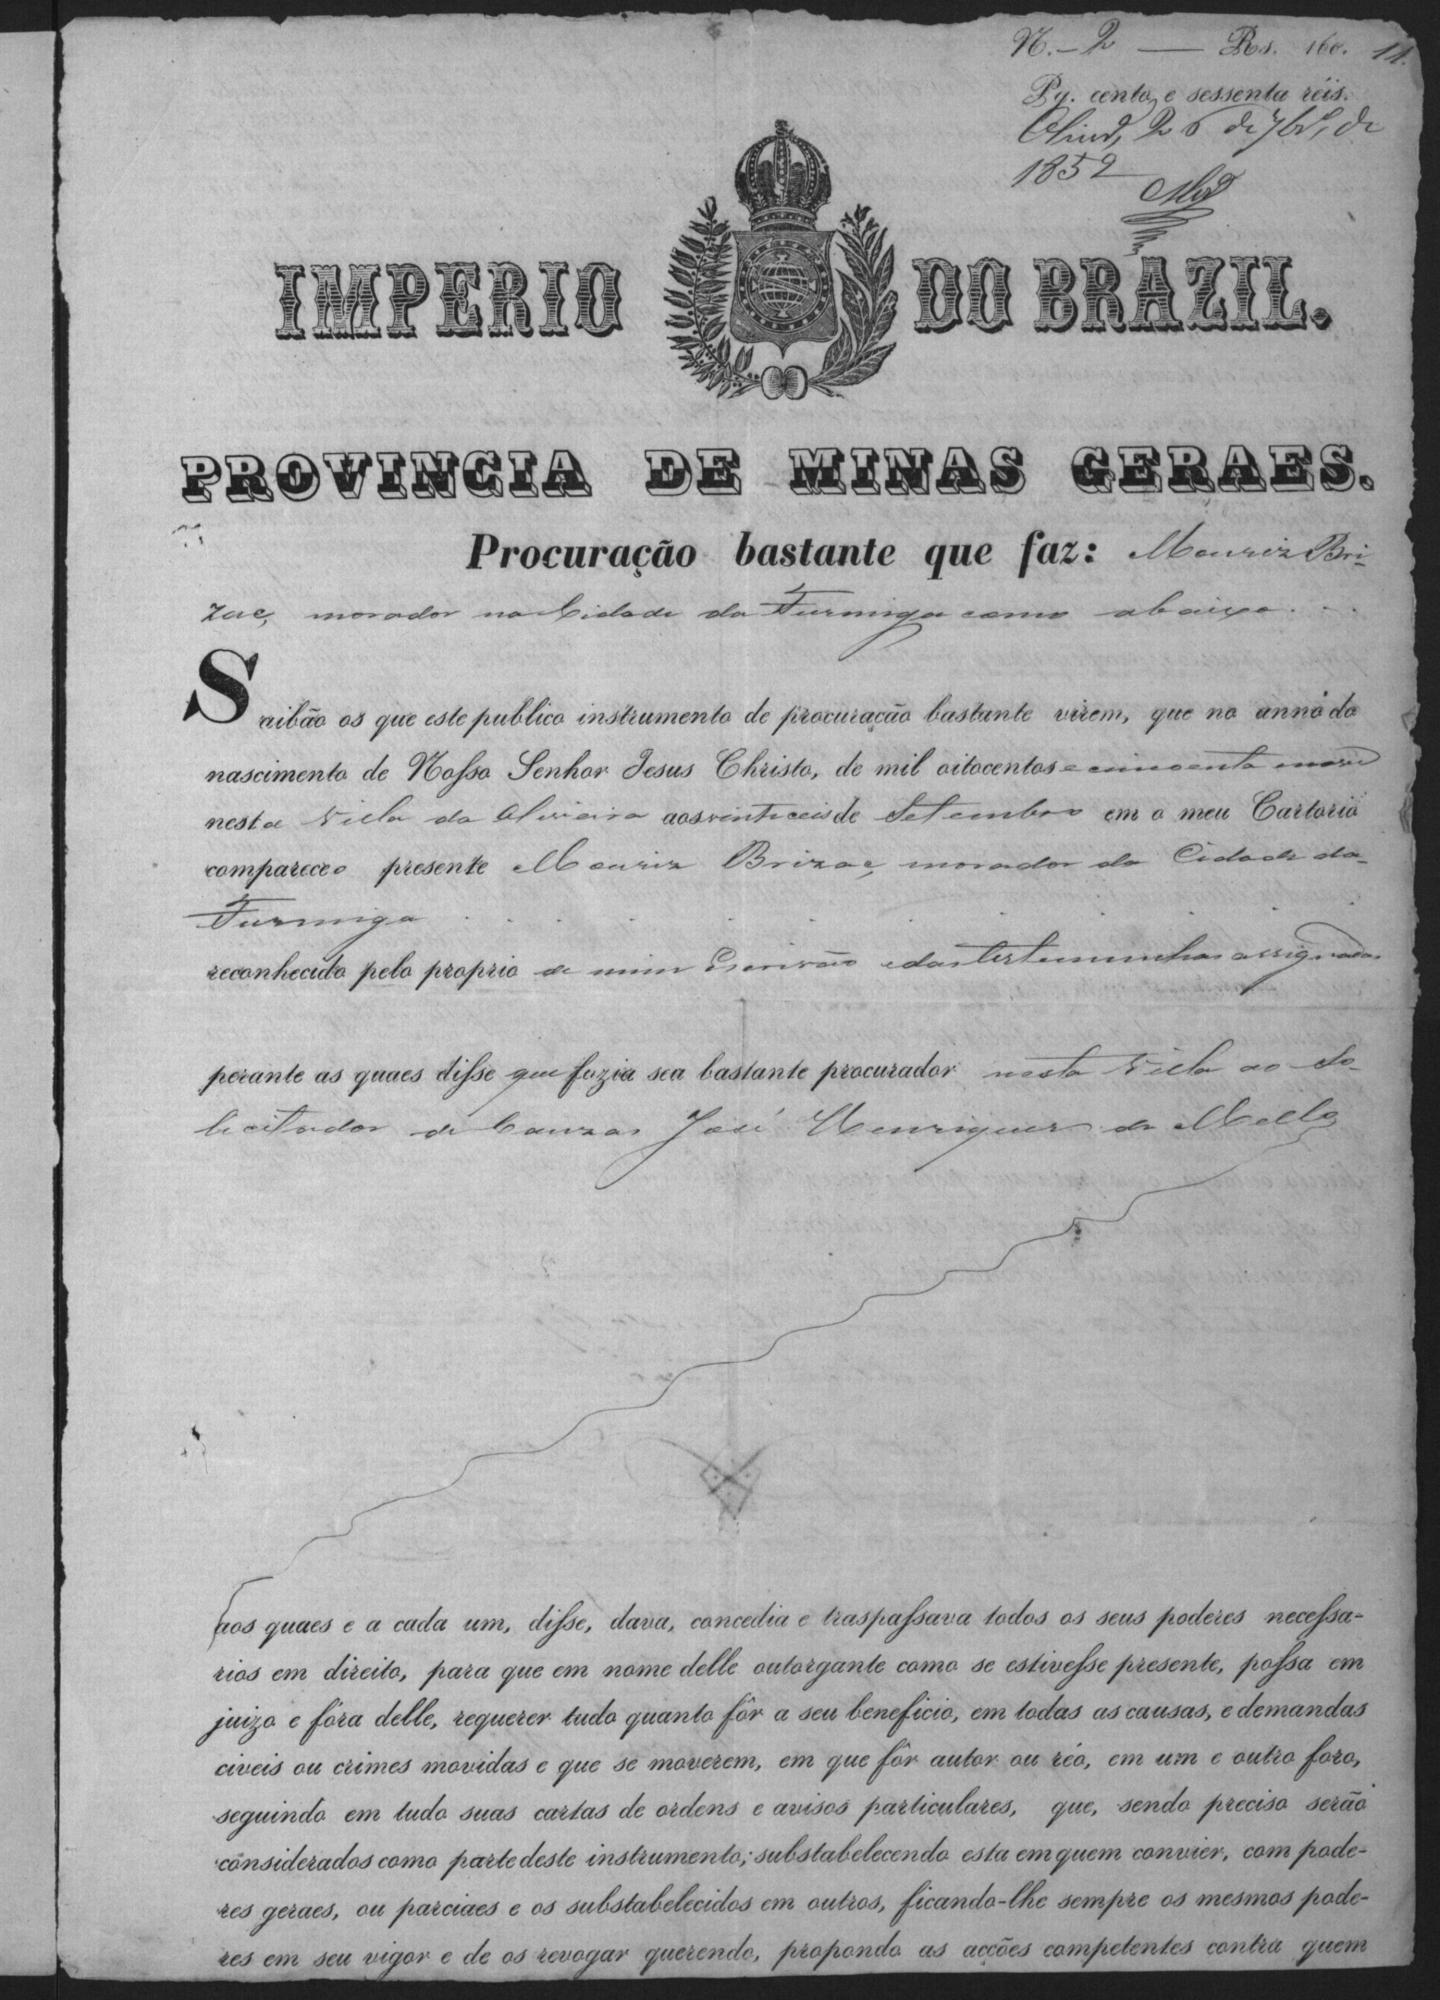 N. — 2 — Rs. 160. 11.
Pg. cento e sessenta réis.
Olivrª, 26 de 7brº, de
1859
IMPERIO DO BRAZIL.
PROVINCIA DE MINAS GERAES.
Procuração bastante que faz: Mouriz Bri-
zac, morador na Cidade da Furmiga como abaixo . . .
Saibão os que este publico instrumento de procuração bastante virem, que no anno do
nascimento de Nosso Senhor Jesus Christo, de mil oitocentos e cincoenta e nove
nesta Villa da Oliveira aos vinte e ceis de Setembro em o meu Cartorio
compareceo presente Mouriz Brizac, morador da Cidade da
Furmiga . . .
reconhecido pelo proprio de mim Escrivão e das testemunhas assignadas
perante as quaes disse que fazia seo bastante procurador nesta Villa ao So-
licitador de Cauzas José Henriques de Mello
aos quaes e a cada um, disse, dava, concedia e traspassava todos os seus poderes necessa-
rios em direito, para que em nome delle outorgante como se estivesse presente, possa em
juizo e fóra delle, requerer tudo quanto fôr a seu beneficio, em todas as causas, e demandas
civeis ou crimes movidas e que se moverem, em que fôr autor ou réo, em um e outro foro,
seguindo em tudo suas cartas de ordens e avisos particulares, que, sendo preciso serão
considerados como parte deste instrumento; substabelecendo esta em quem convier, com pode-
res geraes, ou parciaes e os substabelecidos em outros, ficando-lhe sempre os mesmos pode-
res em seu vigor e de os revogar querendo, propondo as acções competentes contra quem